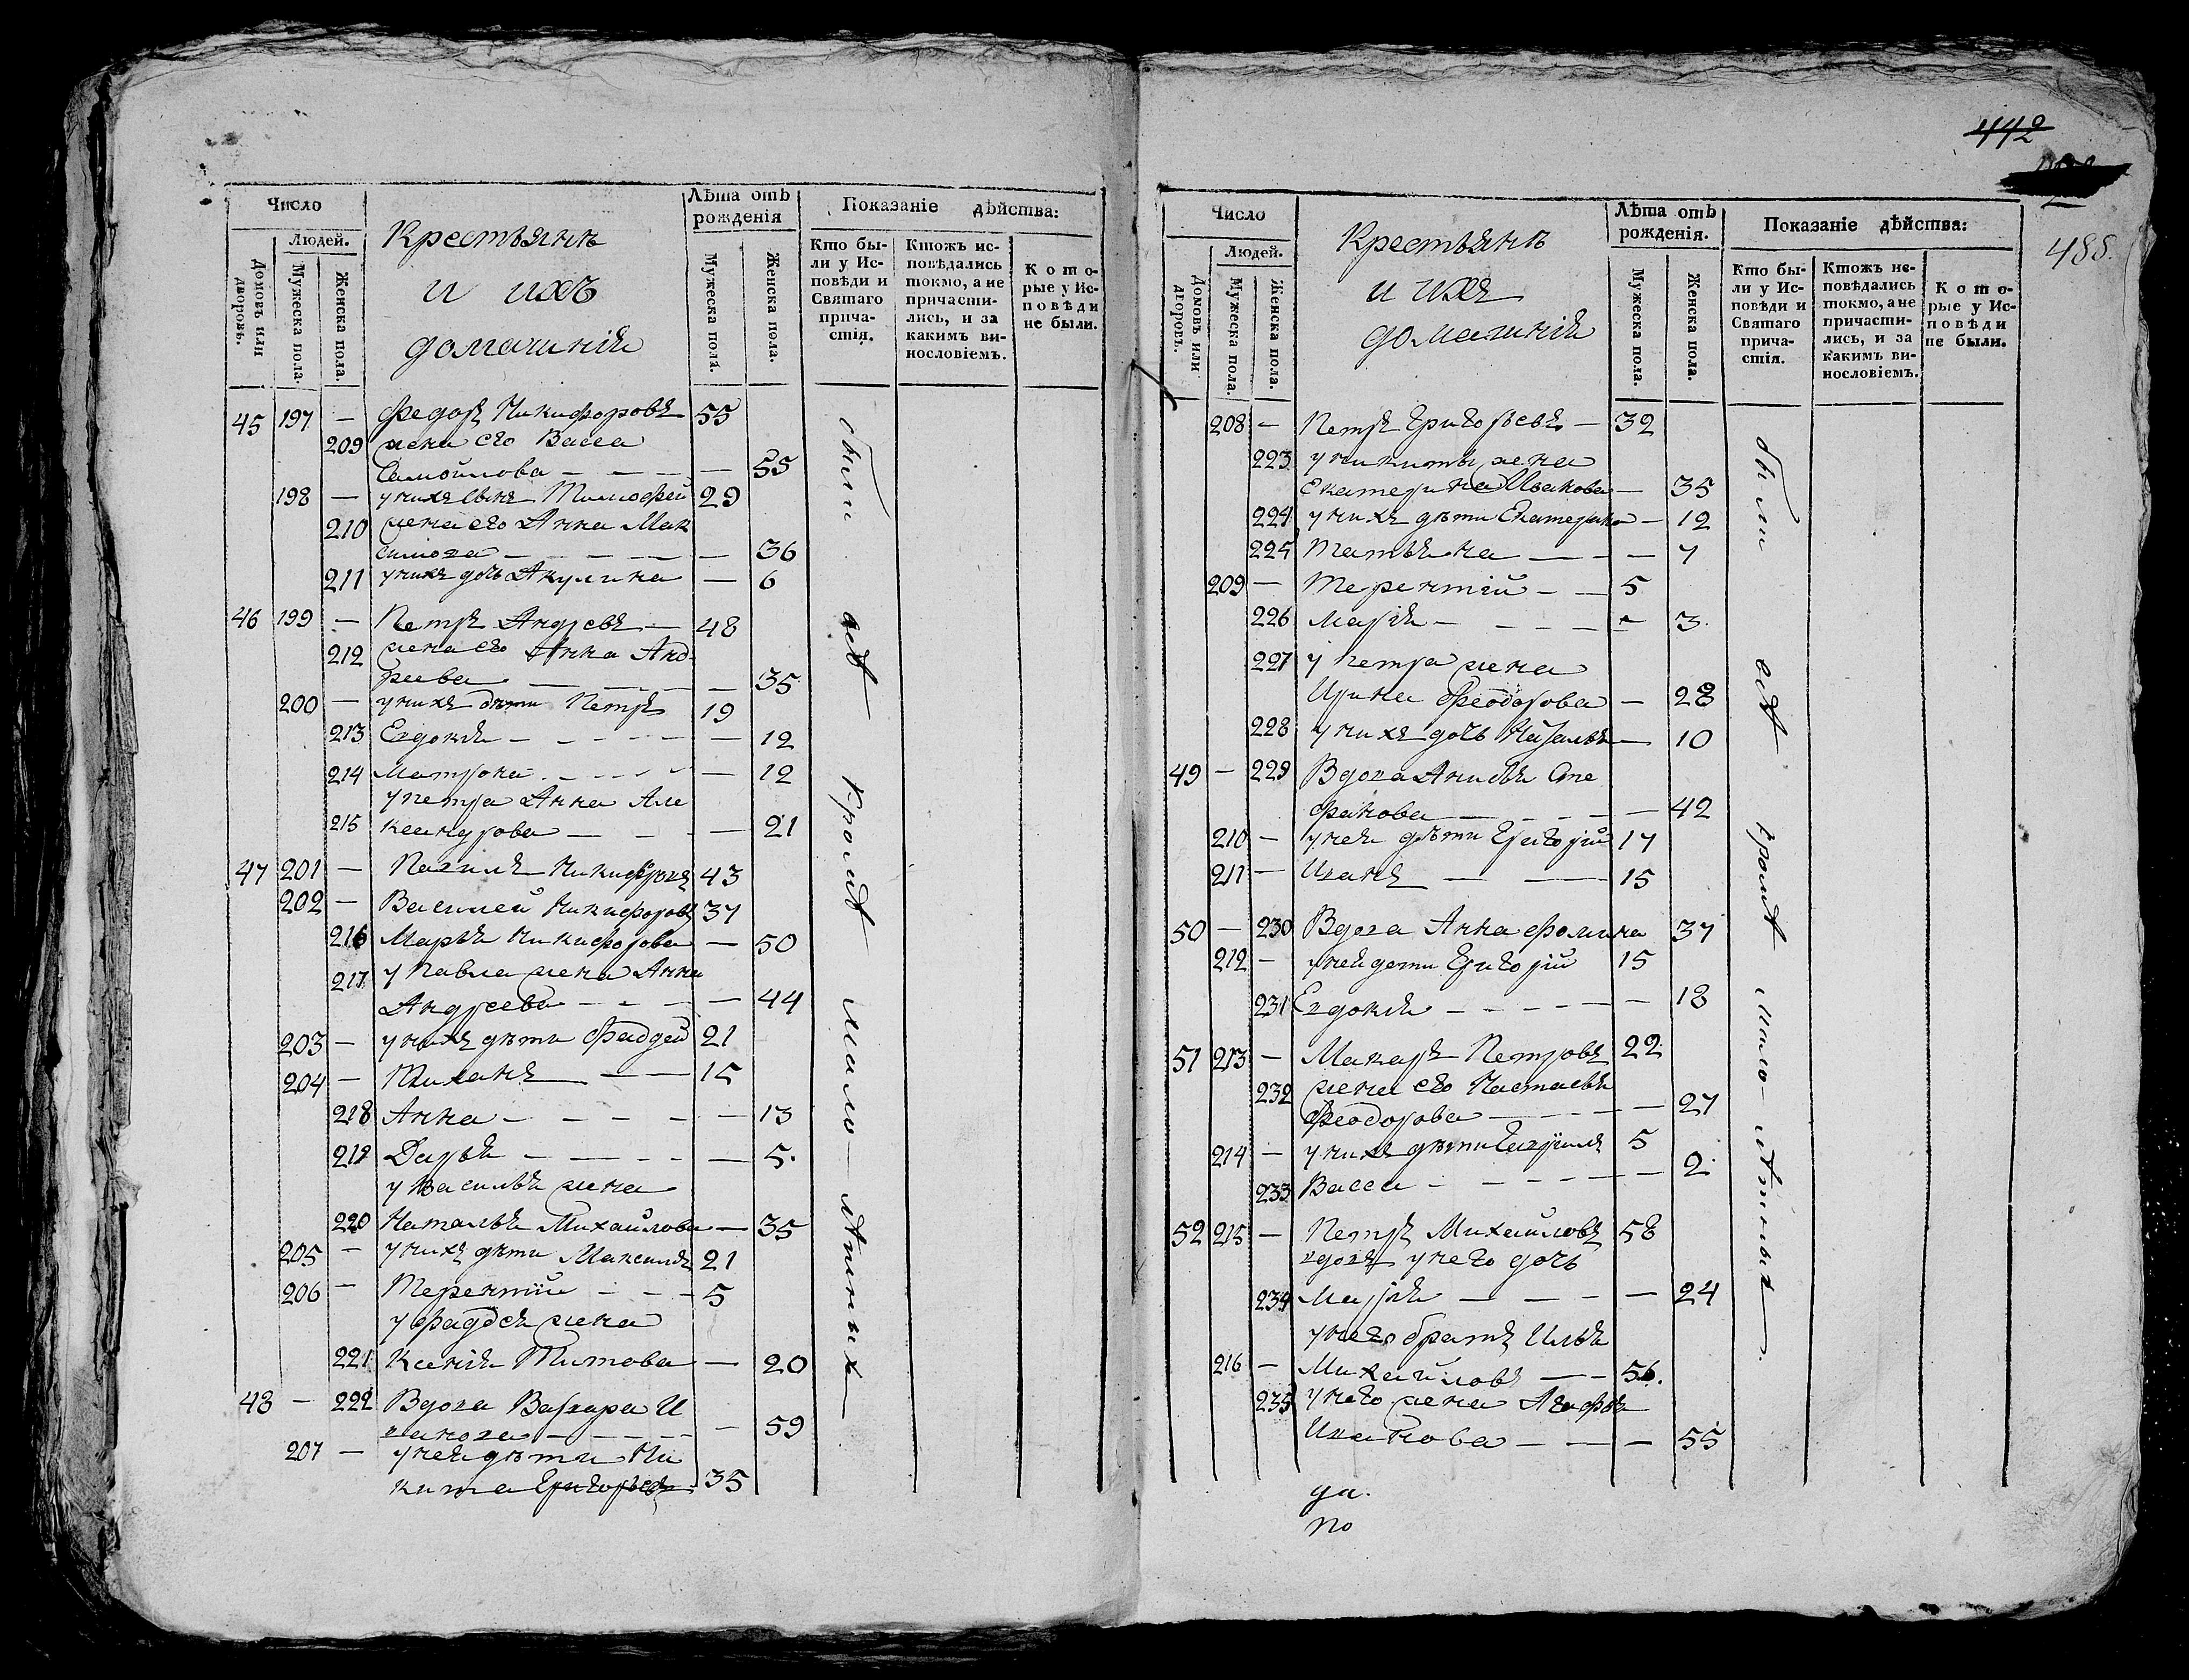 Число
Людей.
Домовъ или дворовъ.
Мужеска пола.
Женска пола.
Крестьянѣ
и ихъ
домашнія
Лѣта отъ рожденія
Мужеска пола.
Женска пола.
Показаніе дѣйства:
Кто были у Исповѣди и Святаго причастія.
Ктожъ исповѣдались токмо, а не причастились, и за какимъ винословіемъ.
Которые у Исповѣди не были.
45 197 — Федоръ Никифоровъ 55
209 жена его Васса
Самойлова — — — — 55
198 — у нихъ сынъ Тимофей 29
210 жена его Анна Мак
симова — — — — 36
211 у нихъ дочь Акулина — 6
46 199 — Петръ Андревъ — 48
212 жена его Анна Анд-
реева — — — — 35
200 — у нихъ дѣти Петръ 19
213 Евдокія — — — — 12
214 Матрона — — — — 12
у петра Анна Але
215 ксандрова — — — — 21
47 201 — Павилъ Никифоровъ 43
202 — Василей Никифоровъ 37
216 Марья Никифорова — 50
217 у Павла жена Анна
Андреева — — — — 44
203 — у нихъ дѣти Фаддей 21
204 — Тиханъ — — 15
218 Анна — — — — 13
219 Дарья — — — — 5.
у Василья жена
220 Наталья Михайлова — 35
205 — у нихъ дѣти Максимъ 21
206 — Терентій — — — 5
у Фаддея жена
221 Ксенія Титова — 20
48 — 222 Вдова Варвара И
ванова — — — — 59
207 — у ней дѣти Ни
кита Григорьевъ 35
были всѣ кромѣ мало-лѣтныхъ
442
488.
Число
Людей.
Домовъ или дворовъ.
Мужеска пола.
Женска пола.
Крестьянѣ
и ихъ
домашнія
Лѣта отъ рожденія.
Мужеска пола.
Женска пола.
Показаніе дѣйства:
Кто были у Исповѣди и Святаго причастія.
Ктожъ исповѣдались токмо, а не причастились, и за какимъ винословіемъ.
Которые у Исповѣди не были.
208 — Петръ Григорьевъ — 32
223 у никиты жена
Екатерина Ивакова — 35
224 у нихъ дѣти Екатерина — 12
225 Татьяна — — — — 7
209 — Терентій — — 5
226 Марія — — — — 3.
227 у петра жена
Ирина Феодорова — 28
228 у нихъ дочь Наталья — 10
49 — 229 Вдова Анисья Сте
фанова — — — — 42
210 — у ней дѣти Григорій 17
211 — Иванъ — — 15
50 — 230 Вдова Анна Фомина 37
212 — у ней дети Григорій 15
231 Евдокія — — — — 18
51 213 — Макаръ Петровъ 22
232 жена его Настасья
Феодорова — — — — 27
214 — у нихъ дѣти Гаврилъ 5
233 Васса — — — — 2.
52 215 — Петръ Михайловъ 58
вдовъ у него дочь
234 Марія — — — — 24
у него братъ Илья
216 — Михайловъ — — 56.
235 у него жена Агафья
Иванова — — — 55
были всѣ кромѣ мало-лѣтныхъ.
да.
по